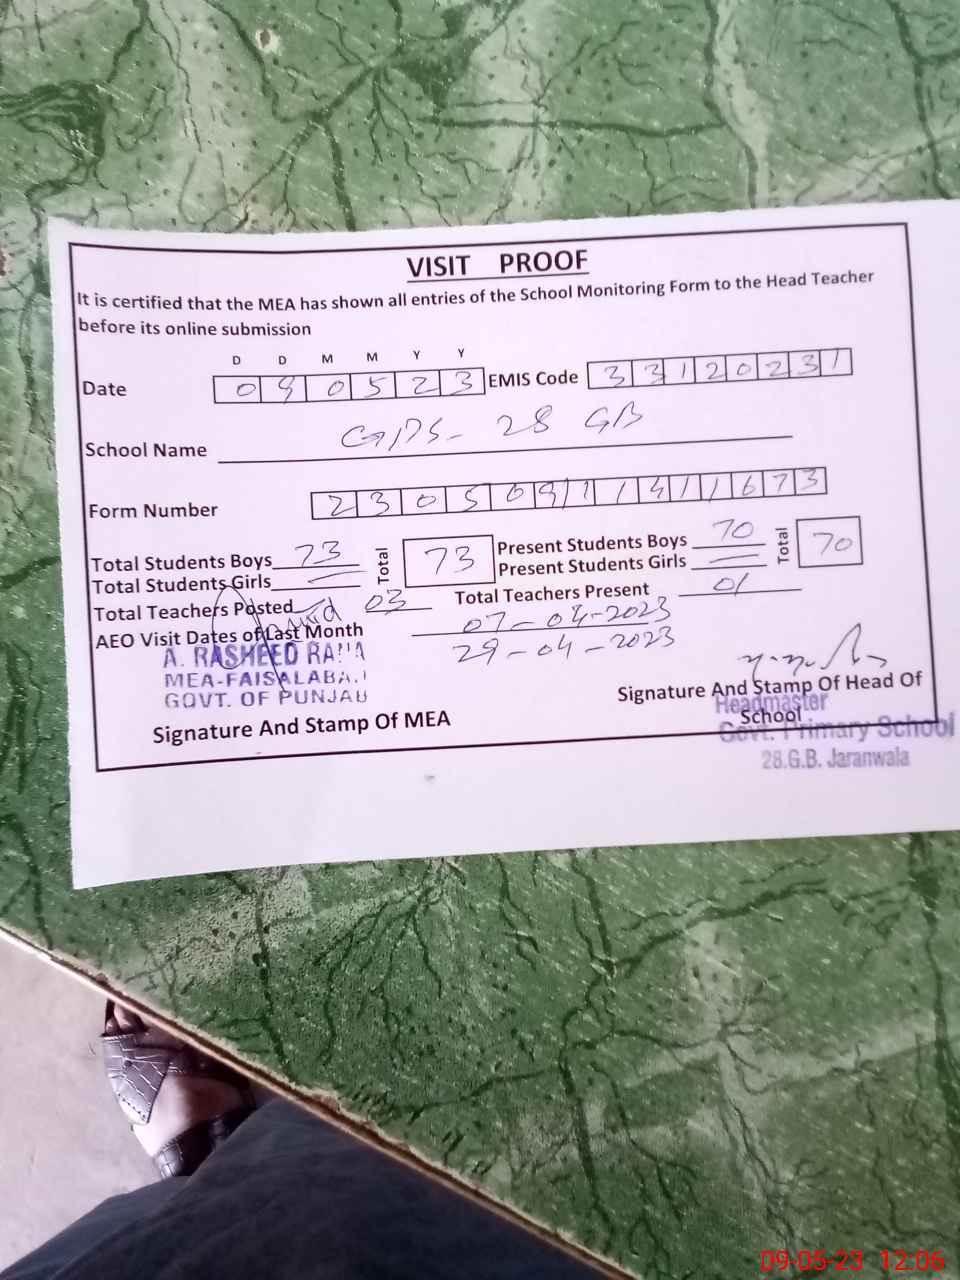 VISIT PROOF
It is certified that the MEA has shown all entries of the School Monitoring Form to the Head Teacher
before its online submission
D D M M Y Y
Date 0 9 0 5 2 3 EMIS Code 3 3 1 2 0 2 3 1
School Name GPS- 28 GB
Form Number 2 3 0 5 0 9 1 1 4 1 6 7 3
Total Students Boys 73 Total 73 Present Students Boys 70 Total 70
Total Students Girls — Present Students Girls —
Total Teachers Posted 03 Total Teachers Present 01
AEO Visit Dates of Last Month 07-04-2023
29-04-2023
A. RASHEED RANA
MEA-FAISALABAD
GOVT. OF PUNJAB
Signature And Stamp Of MEA
Signature And Stamp Of Head Of
School
Headmaster
Govt. Primary School
28.G.B. Jaranwala
09-05-23 12:06